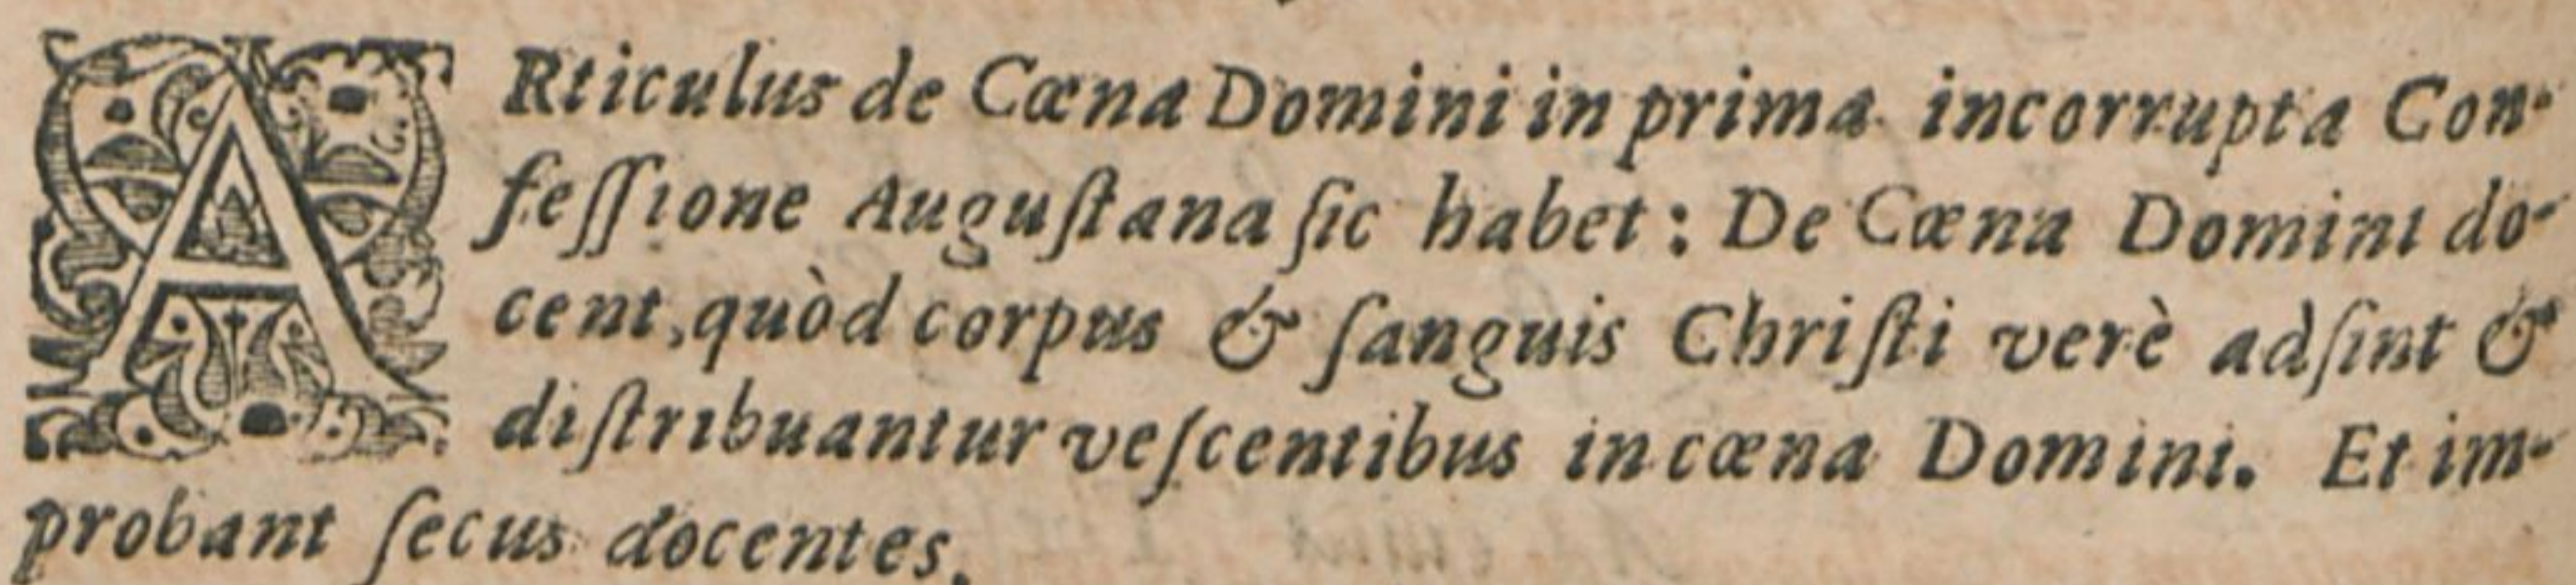 ARticulus de Cœna Domini in prima incorrupta Con-
feſſione Auguſtana ſic habet: De Cœna Domini do-
cent, quòd corpus & ſanguis Chriſti verè adſint &
diſtribuantur veſcentibus in cœna Domini. Et im-
probant ſecus docentes.